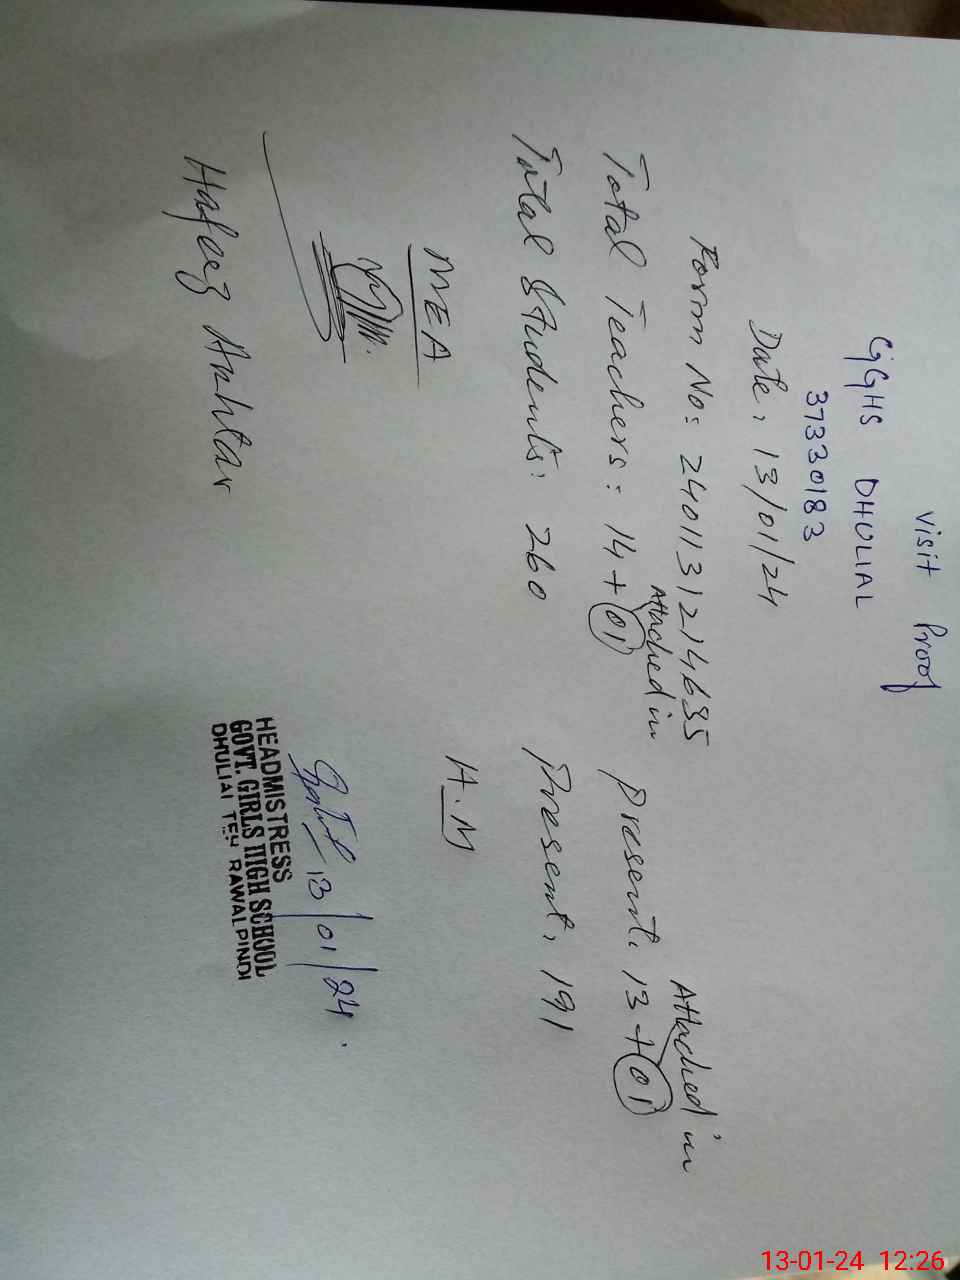 Visit Proof
GGHS DHULIAL
37330183
Date: 13/01/24
Form No: 2401131214635
Attached in
Attached in
Total Teachers: 14 + 01 Present: 13 + 01
Total Students: 260 Present: 191
MEA H.M
13/01/24
Hafeez Akhtar
HEADMISTRESS
GOVT. GIRLS HIGH SCHOOL
DHULIAL TEH RAWALPINDI
13-01-24 12:26